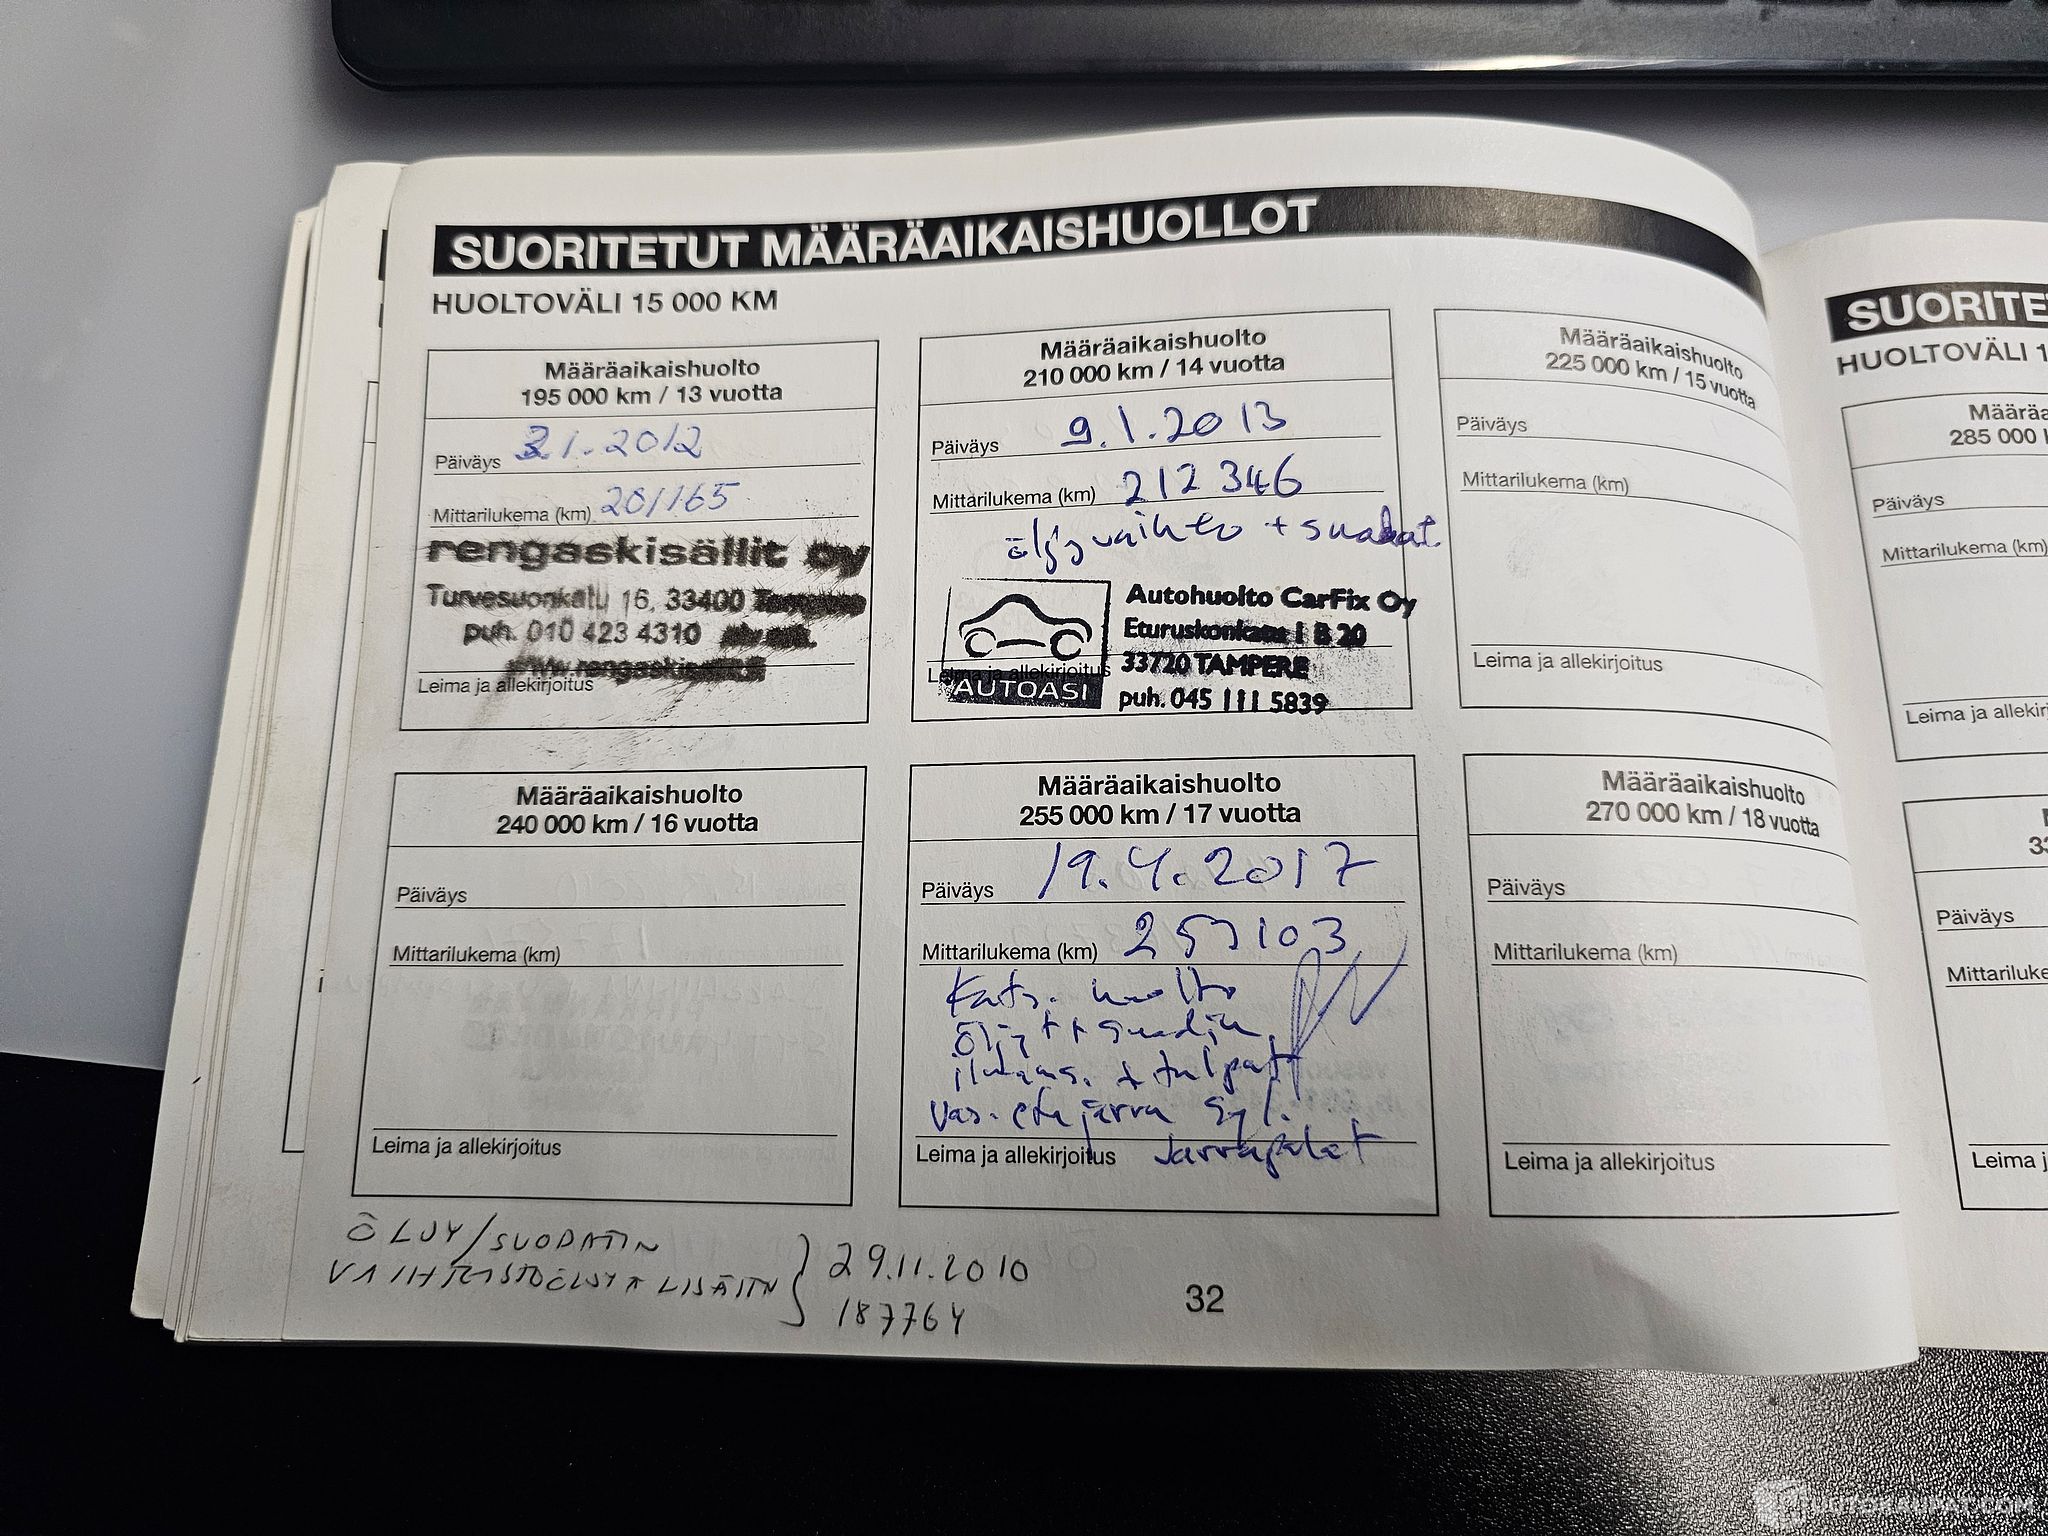 SUORITETUT MÄÄRÄAIKAISHUOLLOT
HUOLTOVÄLI 15 000 KM
Määräaikaishuolto
195 000 km / 13 vuotta
Päiväys 1.2012
Mittarilukema (km) 201165
rengaskisällit oy
Turvesuonkatu 16, 33400 Tampere
puh. 010 423 4310
Leima ja allekirjoitus
Määräaikaishuolto
210 000 km / 14 vuotta
Päiväys 9.1.2013
Mittarilukema (km) 212 346
öljyvaihto +
Autohuolto CarFix Oy
Eturuskonkatu 1 B 20
33720 TAMPERE
puh. 045 111 5839
AUTOASI
Leima ja allekirjoitus
Määräaikaishuolto
225 000 km / 15 vuotta
Päiväys
Mittarilukema (km)
Leima ja allekirjoitus
Määräaikaishuolto
240 000 km / 16 vuotta
Päiväys
Mittarilukema (km)
Leima ja allekirjoitus
Määräaikaishuolto
255 000 km / 17 vuotta
Päiväys 19.4.2017
Mittarilukema (km) 253103
Kats. huolto
öljyt +
+ tulpat
vas. etujarru syl.
Leima ja allekirjoitus Jarrupalat
Määräaikaishuolto
270 000 km / 18 vuotta
Päiväys
Mittarilukema (km)
Leima ja allekirjoitus
ÖLJY/SUODATIN
VAIHTEISTOÖLJYÄ LISÄTTY
29.11.2010
187764
32
SUORITE
HUOLTOVÄLI 1
Määräa
285 000
Päiväys
Mittarilukema (km)
Leima ja allekir
33
Päiväys
Mittariluke
Leima j